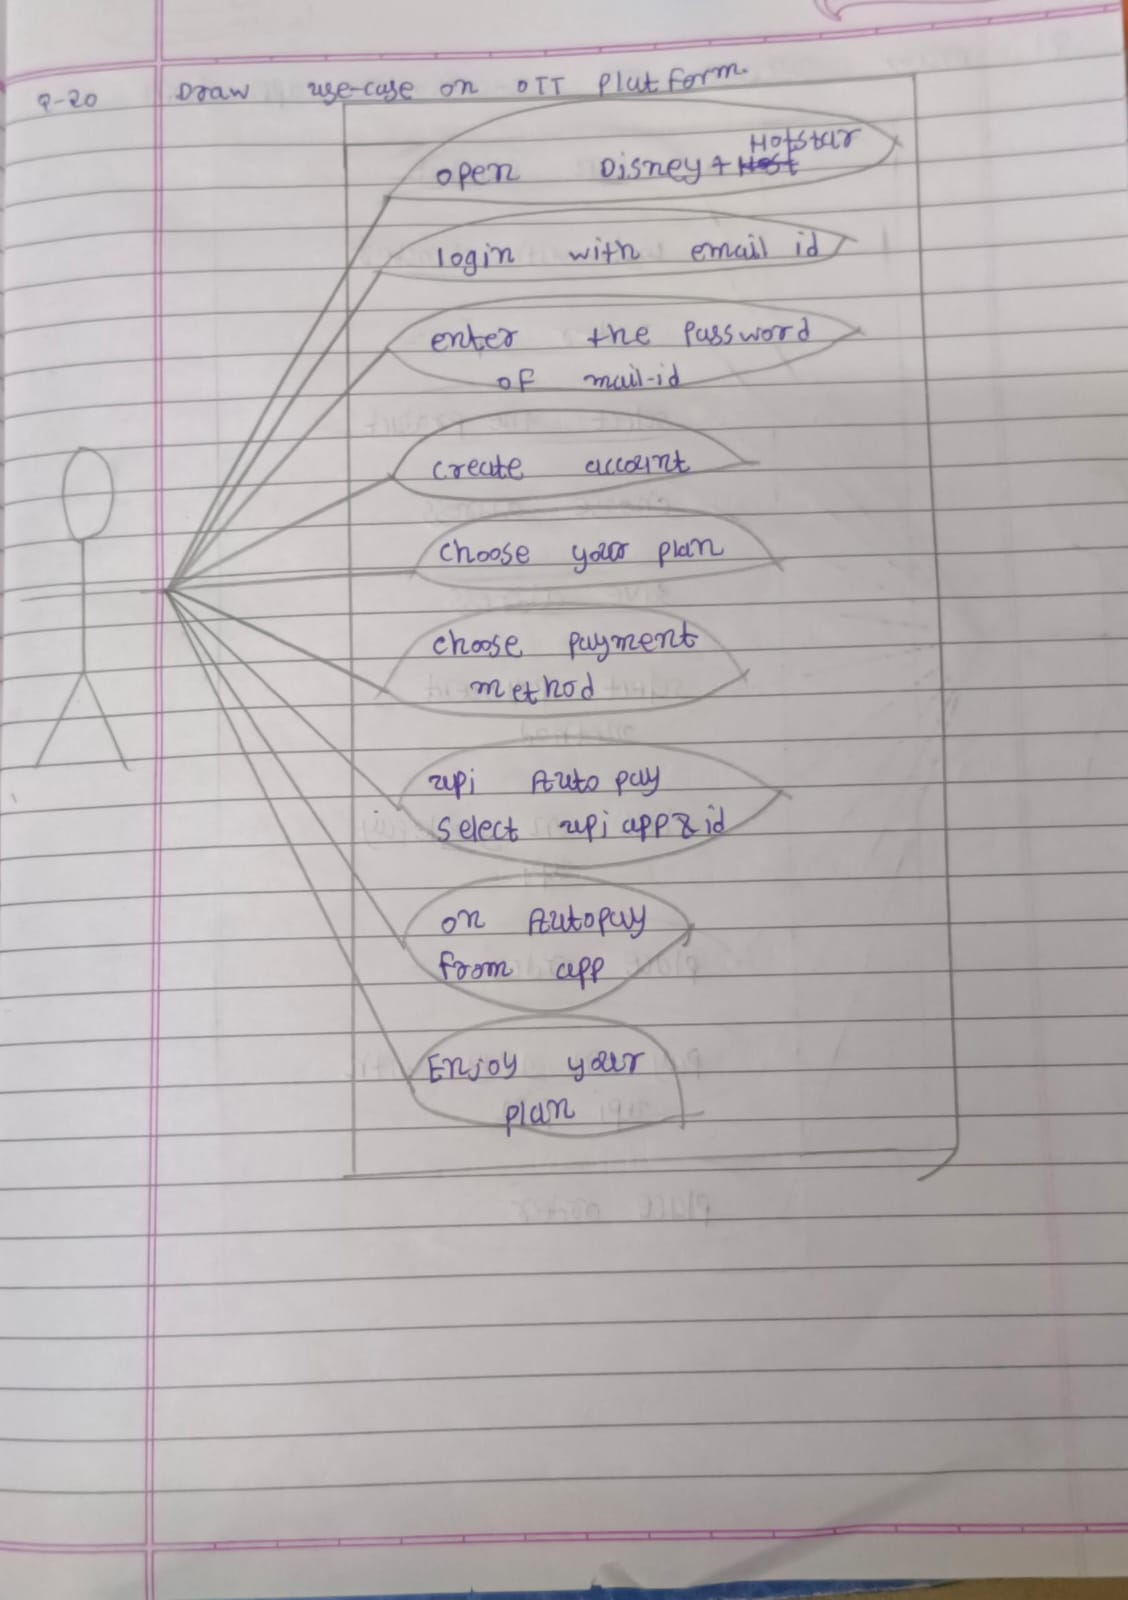 Q-20 Draw use-case on OTT platform.
Hotstar
open Disney+
login with email id
enter the password
of mail-id
create account
choose your plan
choose payment
method
upi Auto pay
select upi app & id
on Autopay
from app
Enjoy your
plan